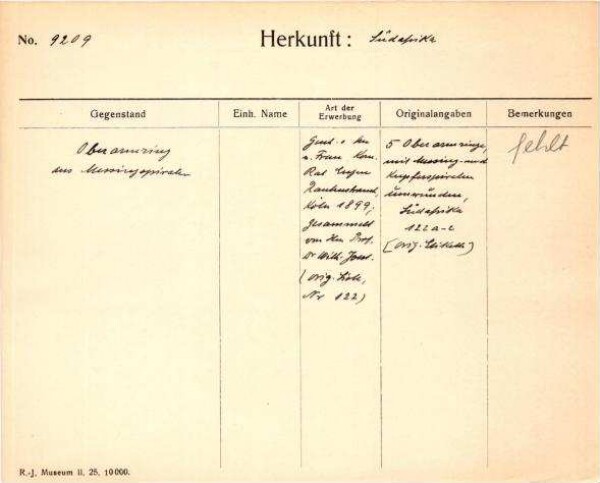 No. 9209
Herkunft: Südafrika
Gegenstand
Einh. Name
Art der Erwerbung
Originalangaben
Bemerkungen
Oberarmring
aus Messingspiralen
Gesch. v. Hrn
u. Frau Kom.
Rat Eugen
Rautenstrauch,
Köln 1899;
gesammelt
von Hrn Prof.
Dr Wilh. Joest.
(orig. Liste,
Nr 122)
5 Oberarmringe,
mit Messing- und
Kupferspiralen
umwunden,
Südafrika
122 a-e
(Orig. Etikett)
fehlt
R.-J. Museum II. 25. 10000.